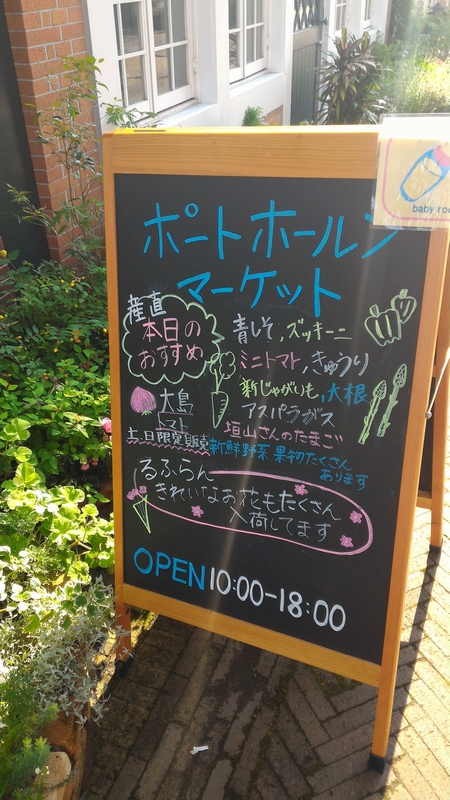 baby roo
ポートホールン
マーケット
産直
本日の
おすすめ
青しそ,ズッキーニ
ミニトマト,きゅうり
新じゃがいも,大根
アスパラガス
垣山さんのたまご
大島
トマト
土,日限定販売
新鮮野菜果物たくさん
あります
るふらん
きれいなお花もたくさん
入荷してます
OPEN 10:00-18:00